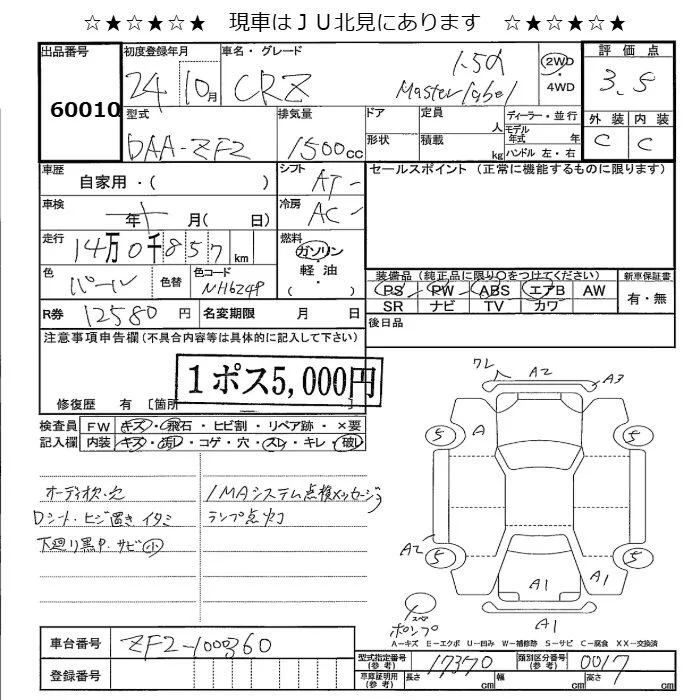 ☆★☆★☆★ 現車はJU北見にあります ☆★☆★☆★
出品番号 60010
初度登録年月 24・10月
車名・グレード CRZ 1.5α Master label
2WD・4WD
評価点 3.5
外装 C 内装 C
型式 DAA-ZF2
排気量 1500cc
ドア 形状
定員 人
積載 kg
ディーラー・並行
モデル年式 年
ハンドル 左・右
車歴 自家用・( )
シフト AT
セールスポイント (正常に機能するものに限ります)
車検 年 月( 日)
冷房 AC
走行 14万0千857km
燃料 ガソリン・軽油・( )
色 パール 色替 色コード NH624P
装備品 (純正品に限り○をつけてください) 新車保証書
PS PW ABS エアB AW 有・無
SR ナビ TV カワ
R券 12580円 名変期限 月 日
後日品
注意事項申告欄(不具合内容等は具体的に記入して下さい)
1ポス5,000円
修復歴 有 〔箇所 〕
検査員記入欄
FW キズ・飛石・ヒビ割・リペア跡・×要
内装 キズ・汚レ・コゲ・穴・スレ・キレ・破レ
オーディオ欠・穴
Dシート・ヒジ置き イタミ
下廻り黒P.サビ小
IMAシステム点検メッセージ
ランプ点灯
ワレ A2 A3
5 A 5
A2 5 5
A1 A1
A1
スペア
ポンプ
A-キズ E-エクボ U-凹み W-補修跡 S-サビ C-腐食 XX-交換済
車台番号 ZF2-100360
登録番号
型式指定番号(参考) 17370 類別区分番号(参考) 0017
車庫証明用(参考) 長さ cm 幅 cm 高さ cm